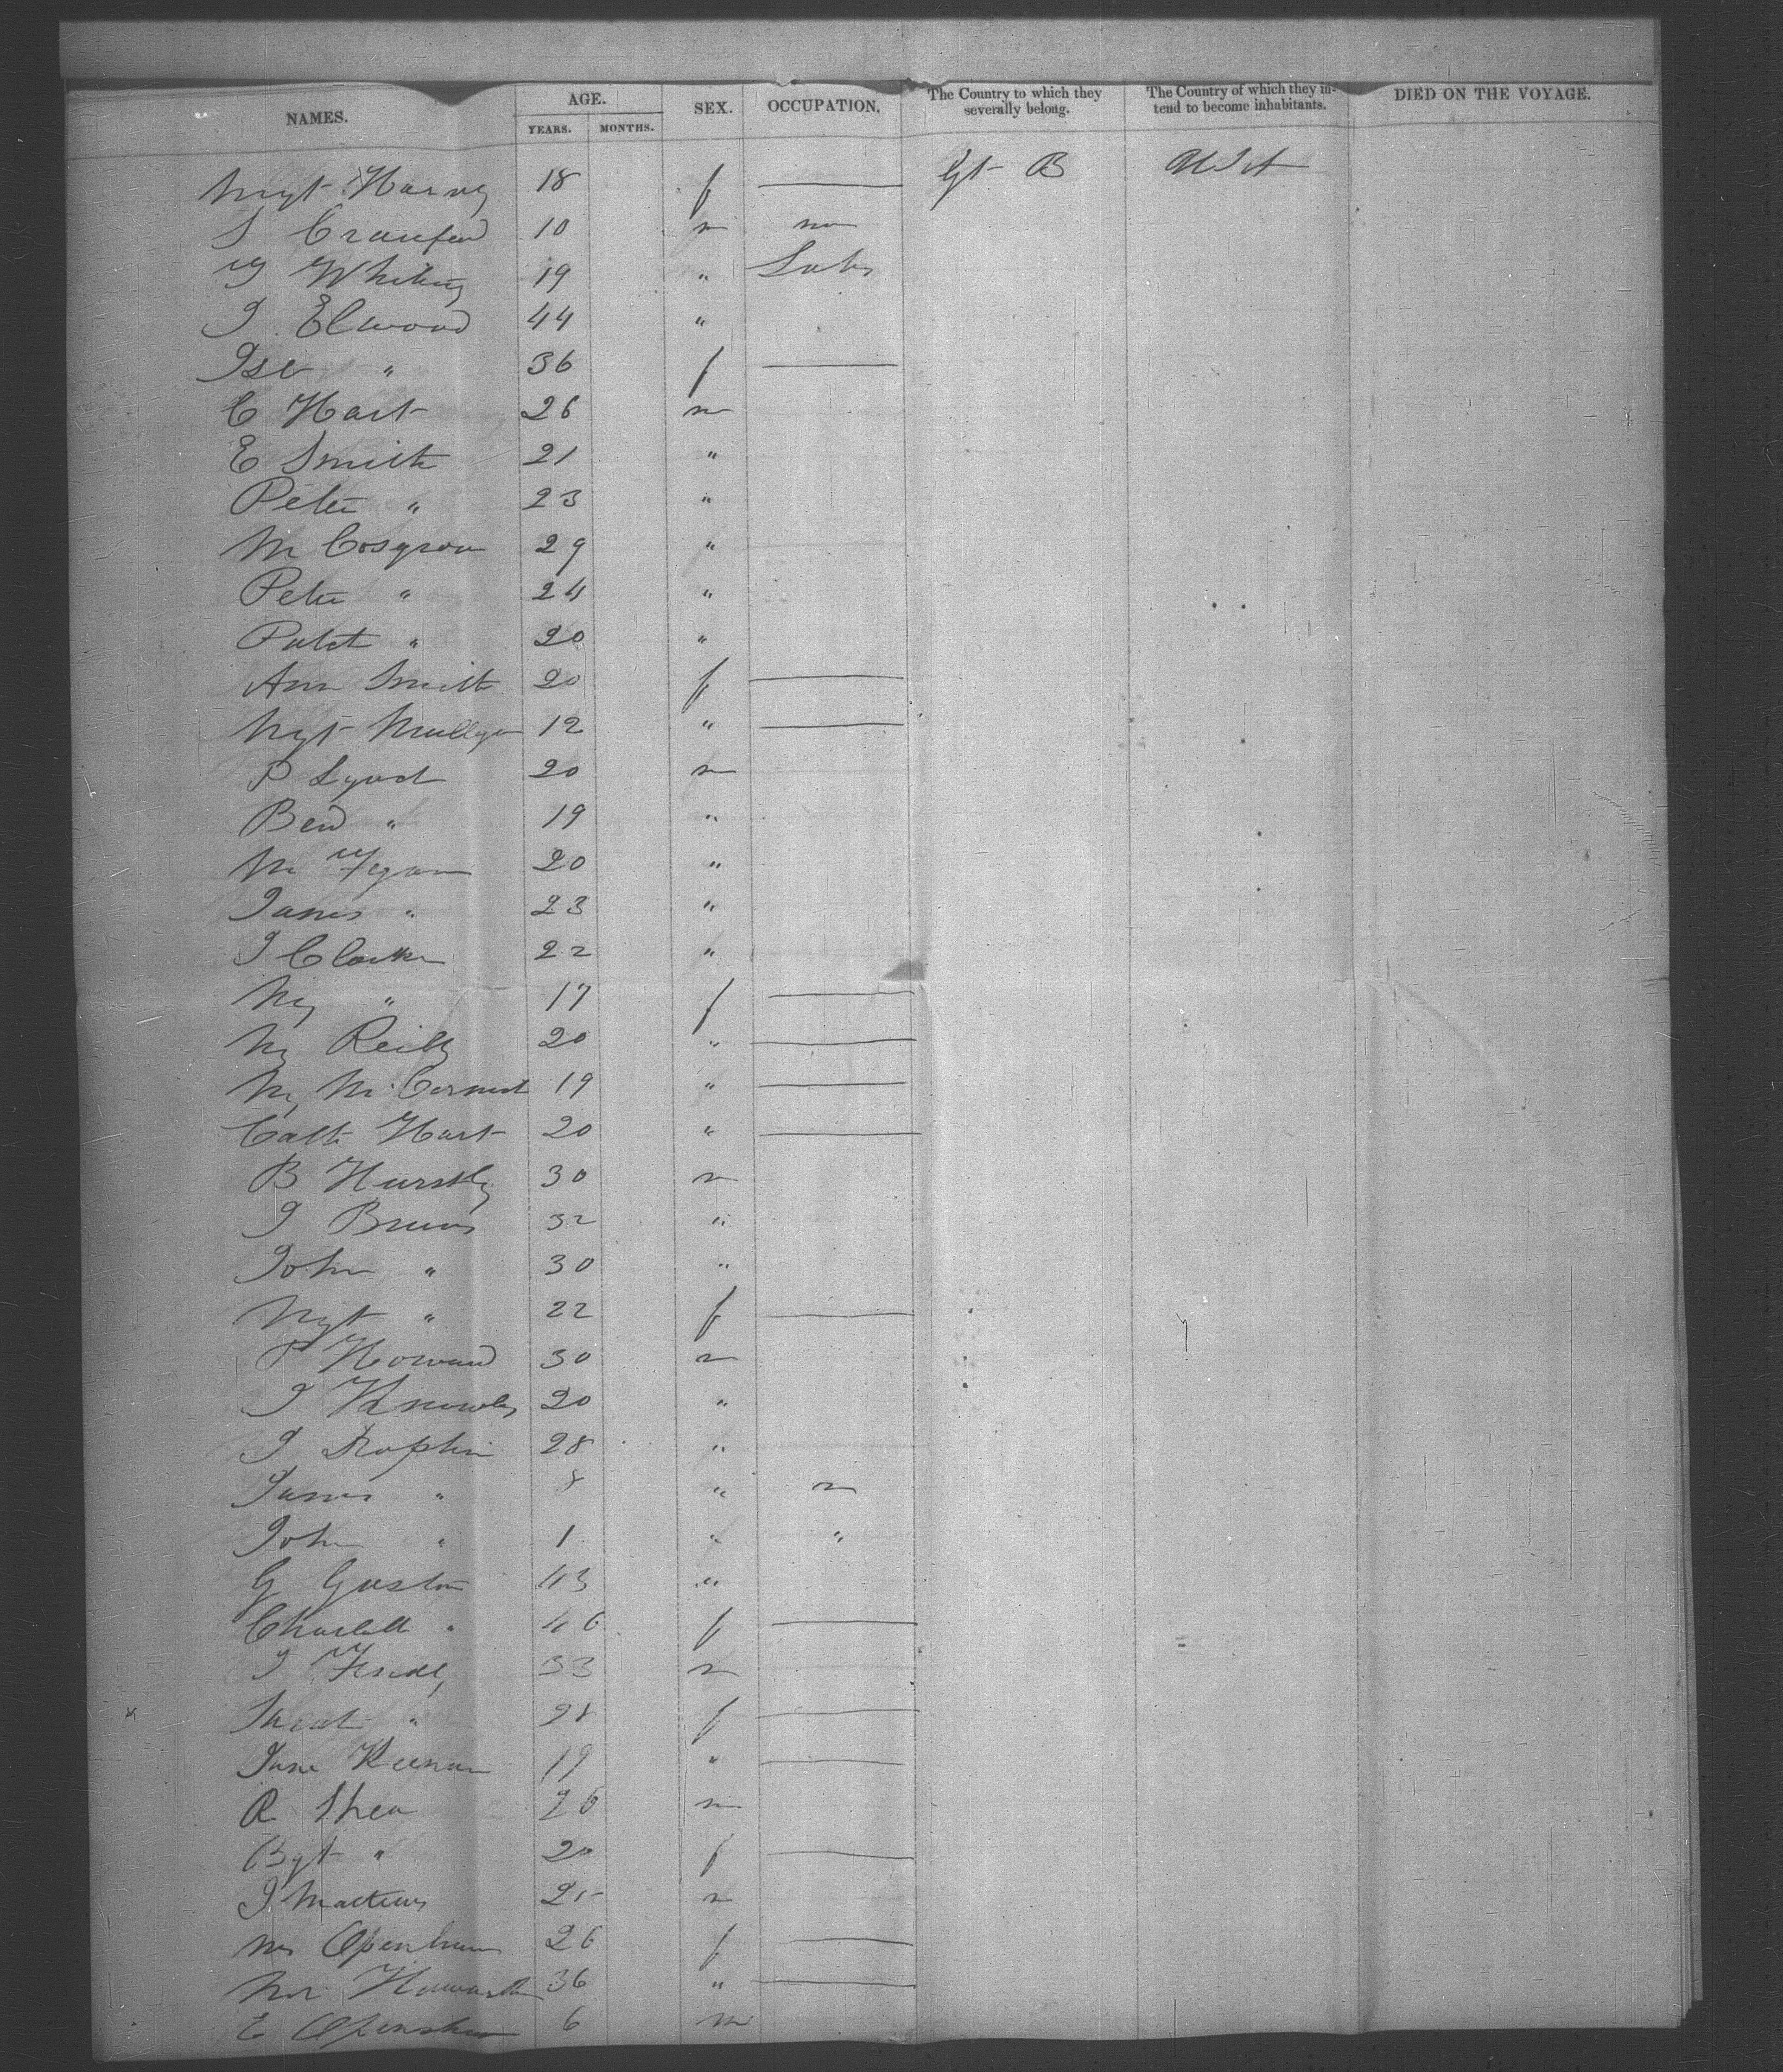 NAMES. AGE. SEX. OCCUPATION. The Country to which they severally belong. The Country of which they intend to become inhabitants. DIED ON THE VOYAGE.
YEARS. MONTHS.
Mgt Harvey 18 f — Gt B USA
S Craufurd 10 m
W Whiting 19 " Labr
J Elwood 44 "
Isb " 36 f —
C Hart 26 m
E Smith 21 "
Peter " 23 "
M Cosgrove 29 "
Peter " 24 "
Patk " 20 "
Ann Smith 20 f —
Mgt Mulligan 12 " —
P Lynch 20 m
Bend " 19 "
M Fegan 20 "
James " 23 "
J Clarke 22 "
My " 17 f —
My Reilly 20 " —
My McCormick 19 " —
Cath Hart 20 " —
B Hurstly 30 m
J Burns 32 "
John " 30 "
Mgt " 22 f —
P Howard 30 m
J Knowles 20 "
J 28 "
James " 8 "
John " 1 " "
G Gaston 43 "
Charlotte " 46 f —
J 33 m
Sarah " 28 f —
Jane Keenan 19 " —
R Shea 26 m
Bgt " 20 f —
J Mathews 25 m
Mrs Openshaw 26 f —
Mrs Howarth 36 " —
E Openshaw 6 m